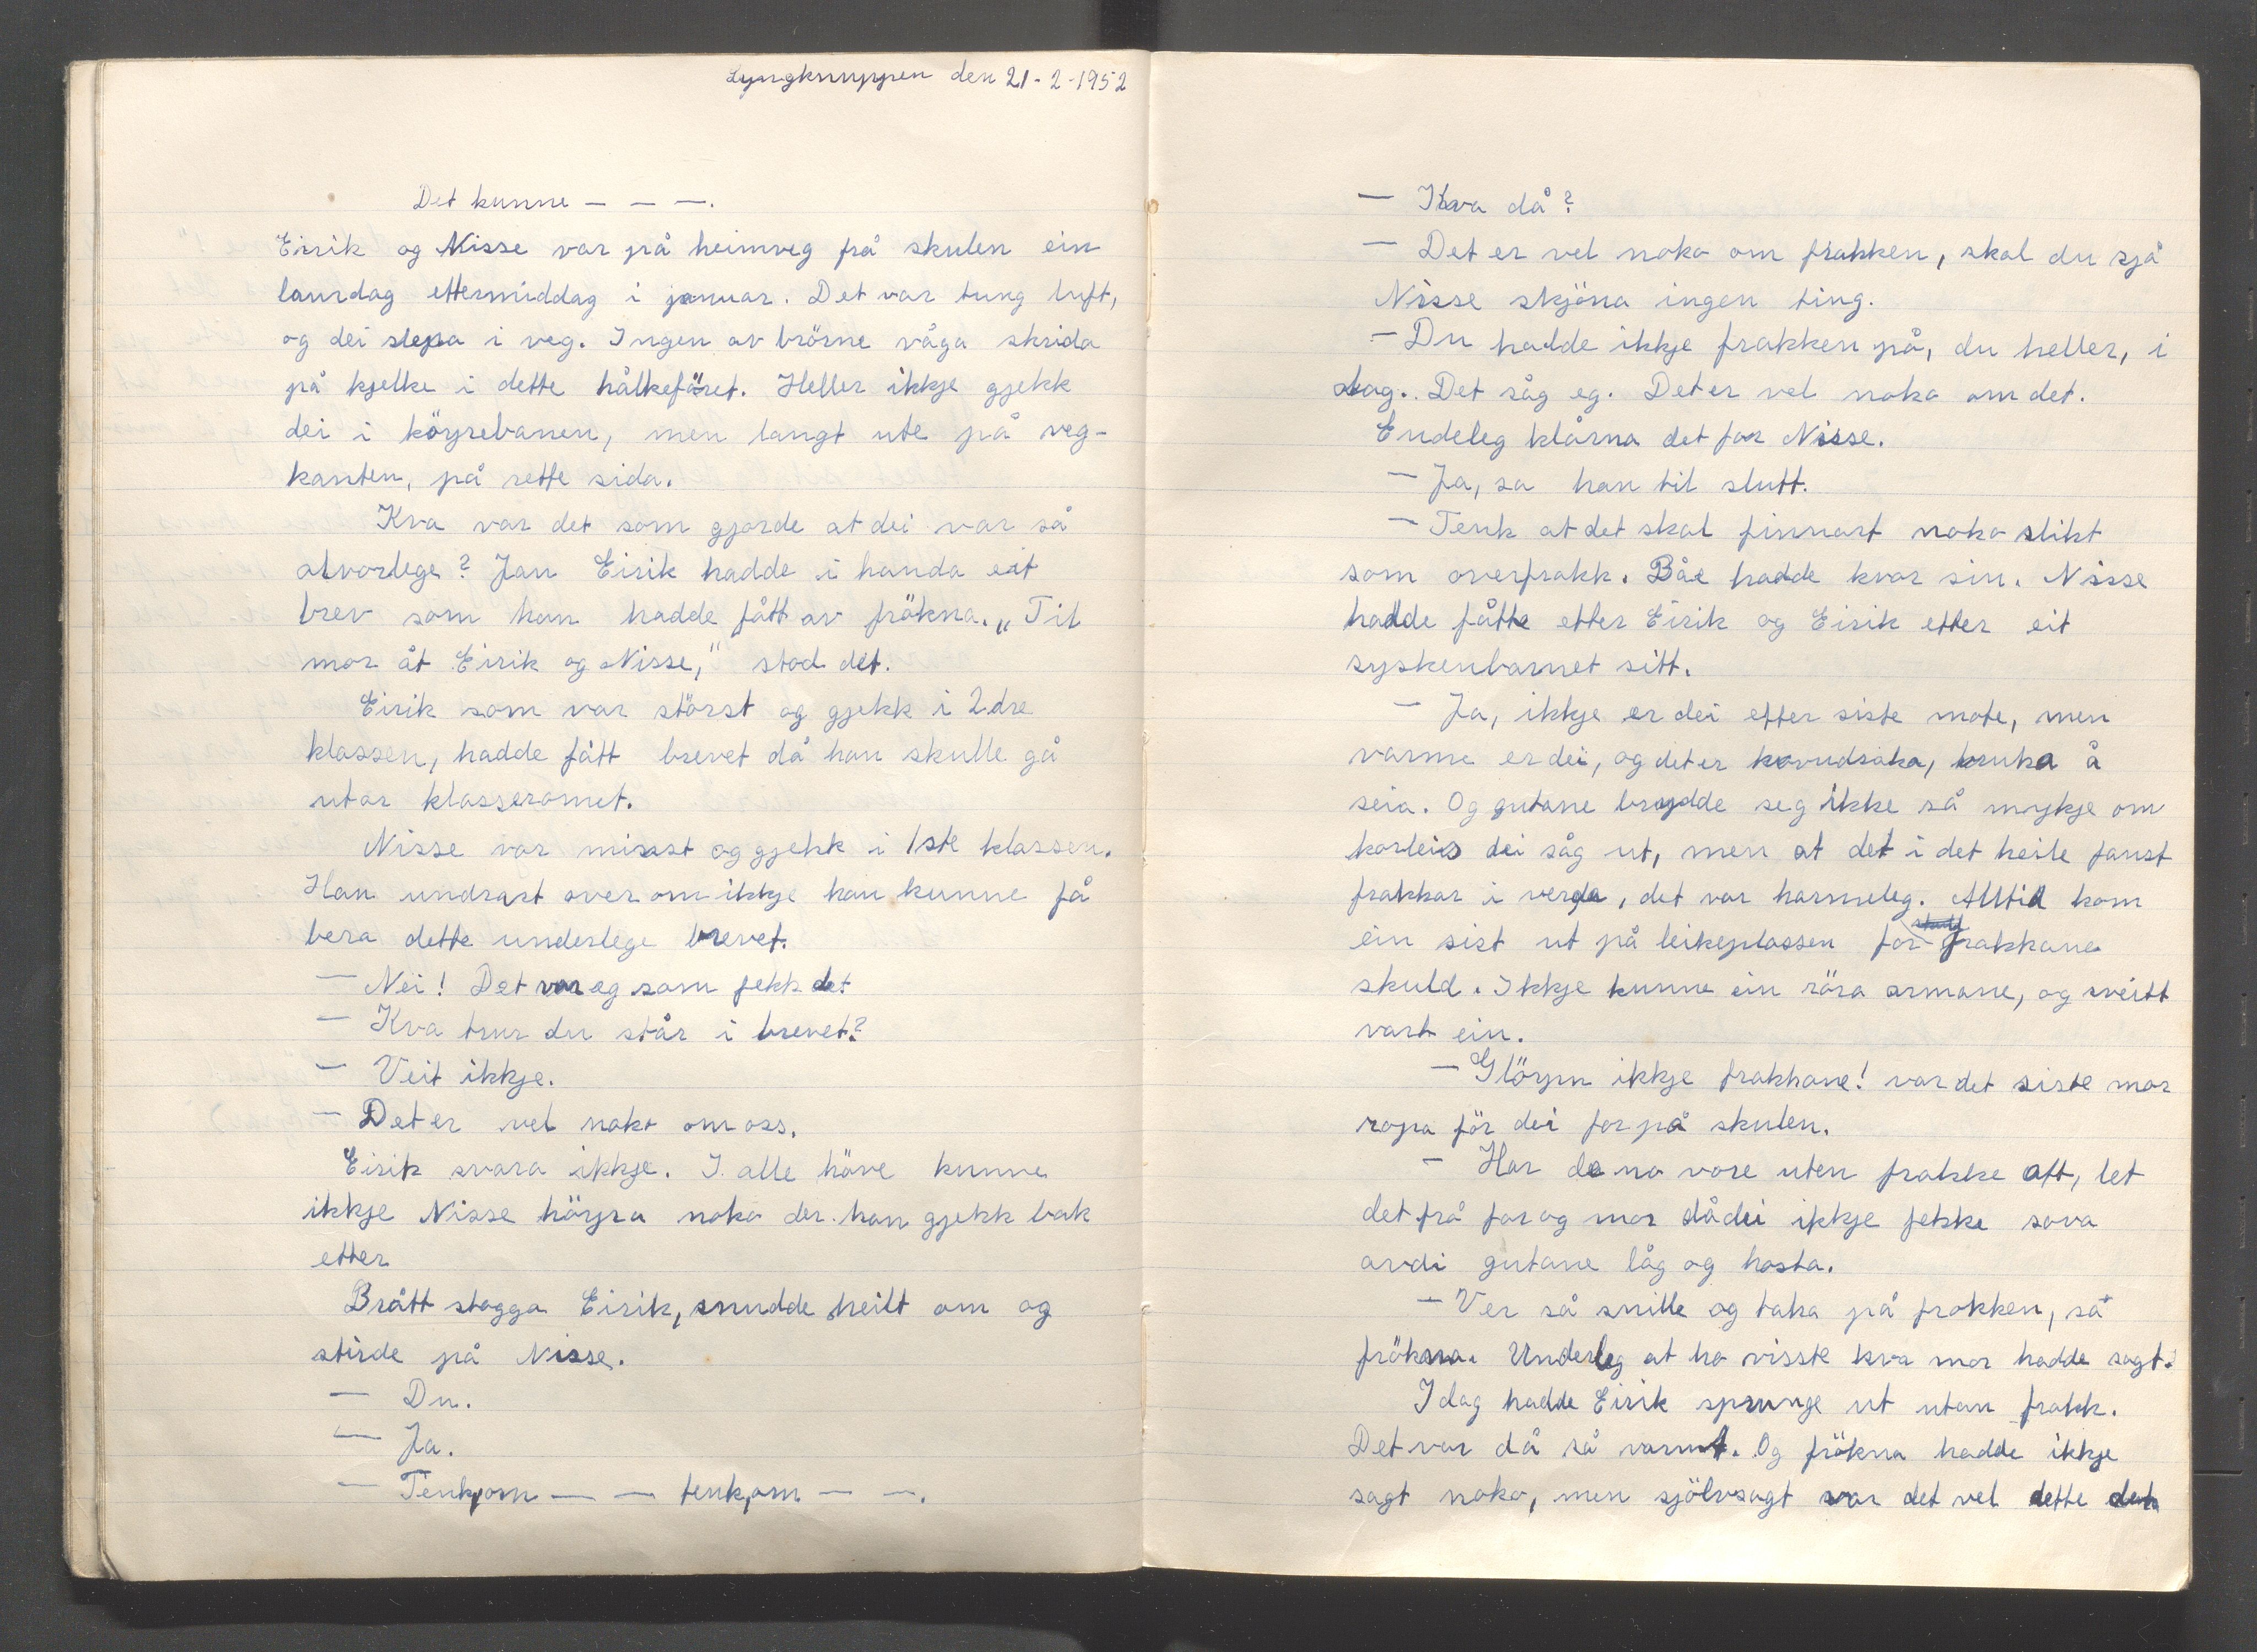 Lyngknuppen den 21-2-1952
Det kunne — — —.
Eirik og Nisse var på heimveg frå skulen ein
laurdag ettermiddag i januar. Det var tung luft,
og dei slepa i veg. Ingen av brörne våga skrida
på kjelke i dette hålkeföret. Heller ikkje gjekk
dei i köyrebanen, men langt ute på veg-
kanten, på rette sida.
Kva var det som gjorde at dei var så
alvorlege? Jau Eirik hadde i handa eit
brev som han hadde fått av frökna. „Til
mor åt Eirik og Nisse," stod det.
Eirik som var störst og gjekk i 2dre
klassen, hadde fått brevet då han skulle gå
utar klasseromet.
Nisse var minst og gjekk i 1ste klassen.
Han undrast over om ikkje han kunne få
bera dette underlege brevet.
— Nei! Det var eg som fekk det
— Kva trur du står i brevet?
— Veit ikkje.
— Det er vel noko om oss.
Eirik svara ikkje. I alle höve kunne
ikkje Nisse höyra noko der han gjekk bak
etter
Brått stogga Eirik, snudde heilt om og
stirde på Nisse.
— Du.
— Ja.
— Tenk, om — — tenk, om — —.
— Kva då?
— Det er vel noko om frakken, skal du sjå
Nisse skjöna ingen ting.
— Du hadde ikkje frakken på, du heller, i
dag. Det såg eg. Det er vel noko om det.
Endeleg klårna det for Nisse.
— Ja, sa han til slutt.
— Tenk at det skal finnast noko slikt
som overfrakk. Båe hadde kvar sin. Nisse
hadde fåtte etter Eirik og Eirik etter eit
syskenbarnet sitt.
— Ja, ikkje er dei etter siste mote, men
varme er dei, og det er hovudsaka, bruka å
seia. Og gutane brydde seg ikke så mykje om
korleis dei såg ut, men at det i det heile fanst
frakkar i verda, det var harmeleg. Alltid kom
ein sist ut på leikeplassen for frakkane
skuld. Ikkje kunne ein röra armane, og sveitt
vart ein.
— Glöym ikkje frakkane! var det siste mor
ropa för dei for på skulen.
— Har de no vore uten frakke att, let
det frå far og mor då dei ikkje fekke sova
avdi gutane låg og hosta.
— Ver så snille og taka på frakken, sa
frökna. Underleg at ho visste kva mor hadde sagt.
I dag hadde Eirik sprunge ut utan frakk.
Det var då så varmt. Og frökna hadde ikkje
sagt noko, men sjölvsagt var det vel dette det